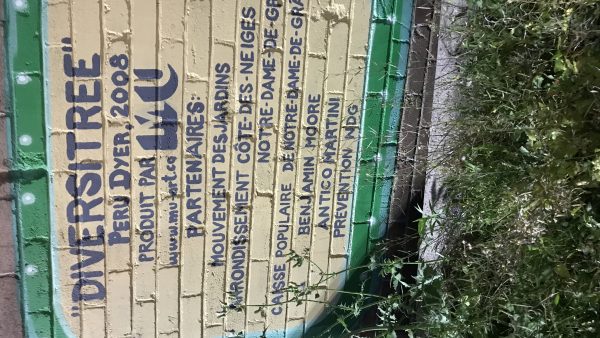 "DIVERSITREE"
PERU DYER, 2008
PRODUIT PAR MU
www.mu-art.ca
PARTENAIRES:
MOUVEMENT DESJARDINS
ARRONDISSEMENT CÔTE-DES-NEIGES
NOTRE-DAME-DE-GR
CAISSE POPULAIRE DE NOTRE-DAME-DE-GRÂ
BENJAMIN MOORE
ANTICO MARTINI
PREVENTION NDG